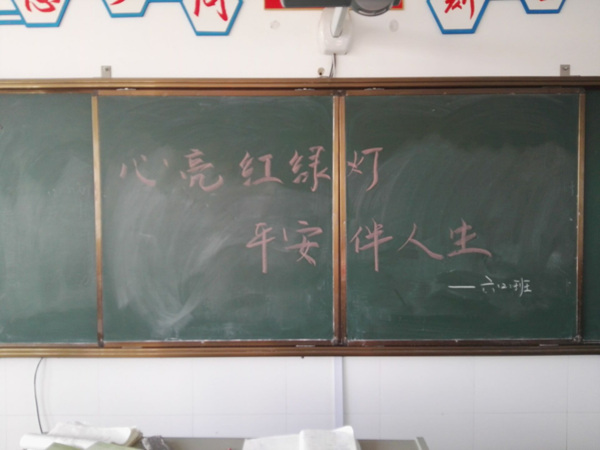 心亮红绿灯
平安伴人生
——六(2)班